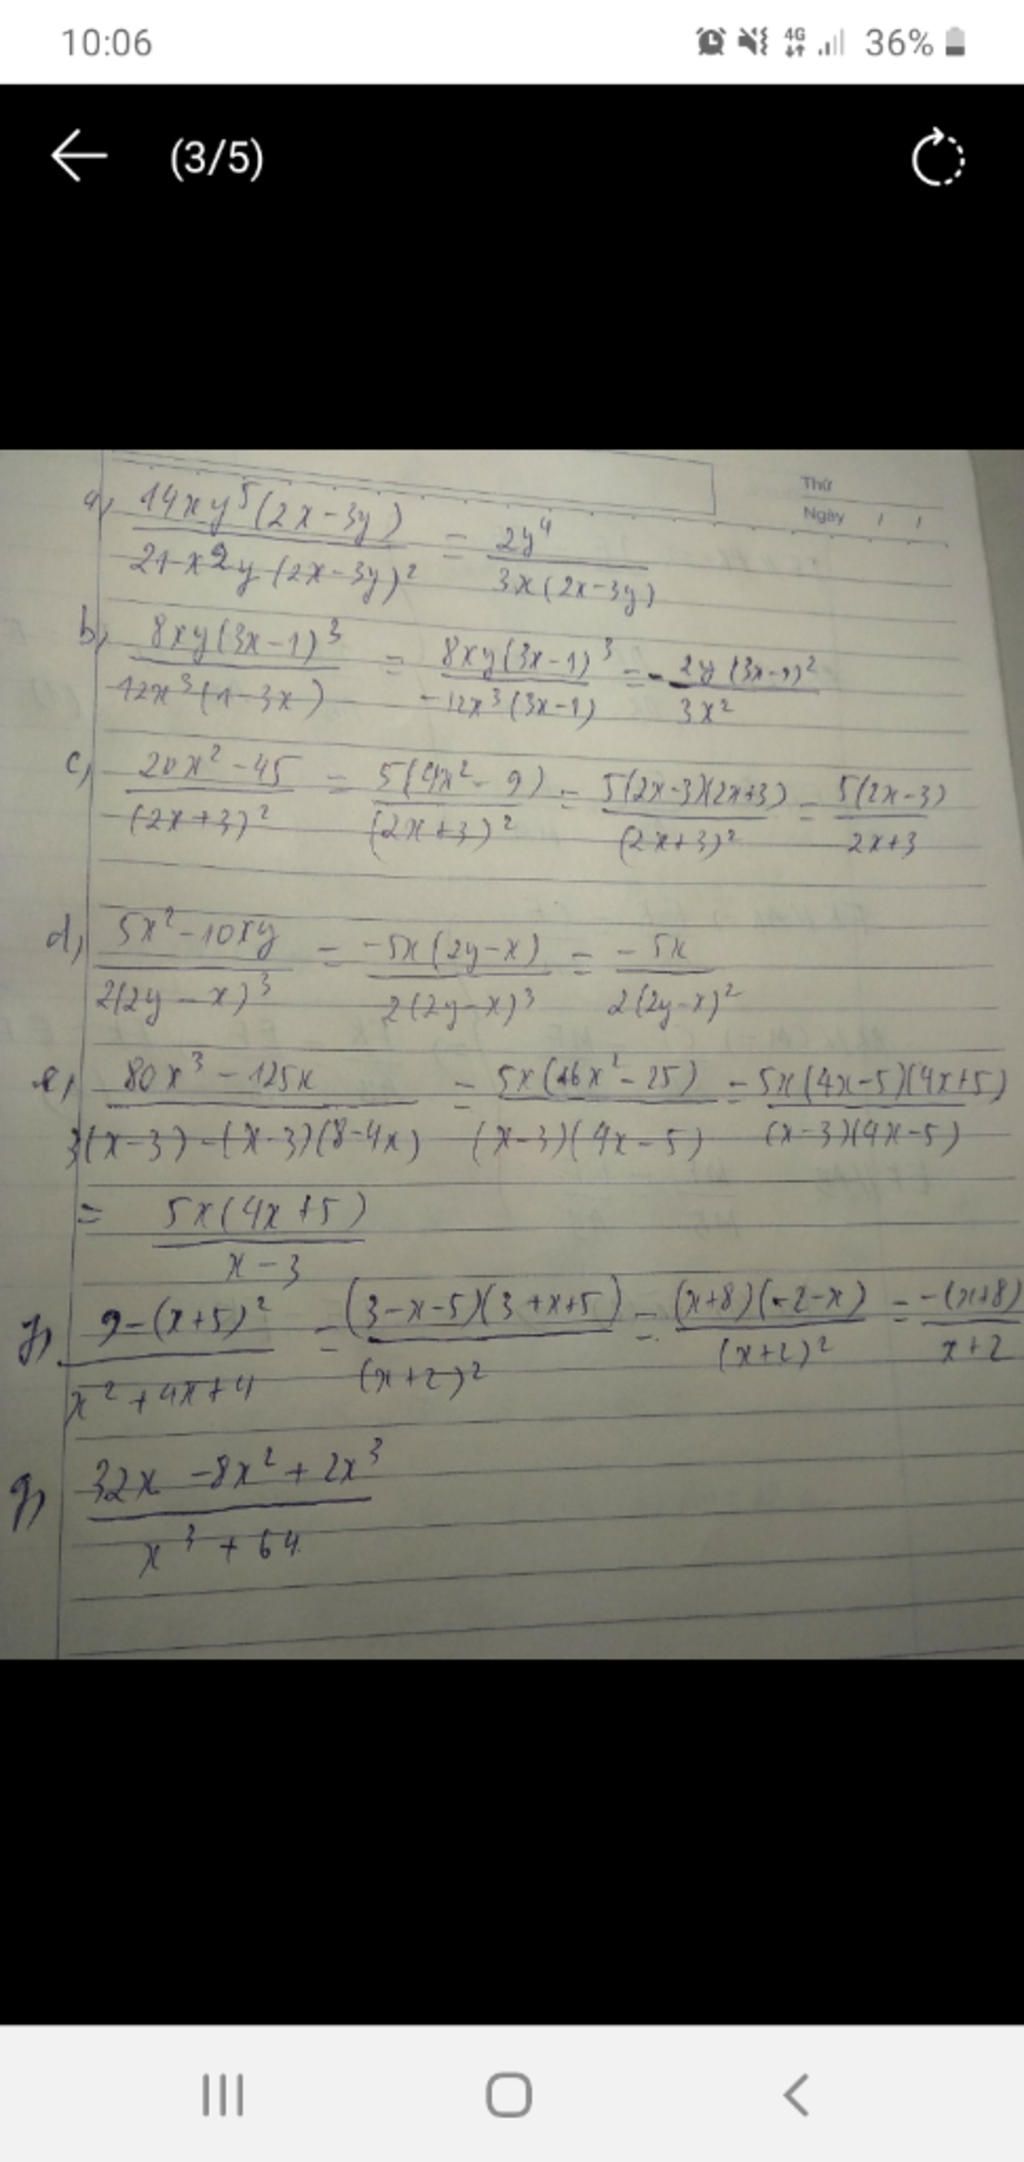 10:06 4G 36%
(3/5)
Thứ
Ngày / /
a, 14xy⁵(2x-3y) / 21x²y(2x-3y)² = 2y⁴ / 3x(2x-3y)
b, 8xy(3x-1)³ / 12x³(1-3x) = 8xy(3x-1)³ / -12x³(3x-1) = - 2y(3x-1)² / 3x²
c, 20x²-45 / (2x+3)² = 5(4x²-9) / (2x+3)² = 5(2x-3)(2x+3) / (2x+3)² = 5(2x-3) / 2x+3
d, 5x²-10xy / 2(2y-x)³ = -5x(2y-x) / 2(2y-x)³ = -5x / 2(2y-x)²
e, 80x³-125x / 3(x-3)-(x-3)(8-4x) = 5x(16x²-25) / (x-3)(4x-5) = 5x(4x-5)(4x+5) / (x-3)(4x-5)
= 5x(4x+5) / x-3
f, 9-(x+5)² / x²+4x+4 = (3-x-5)(3+x+5) / (x+2)² = (x+8)(-2-x) / (x+2)² = -(x+8) / x+2
g, 32x-8x²+2x³ / x³+64